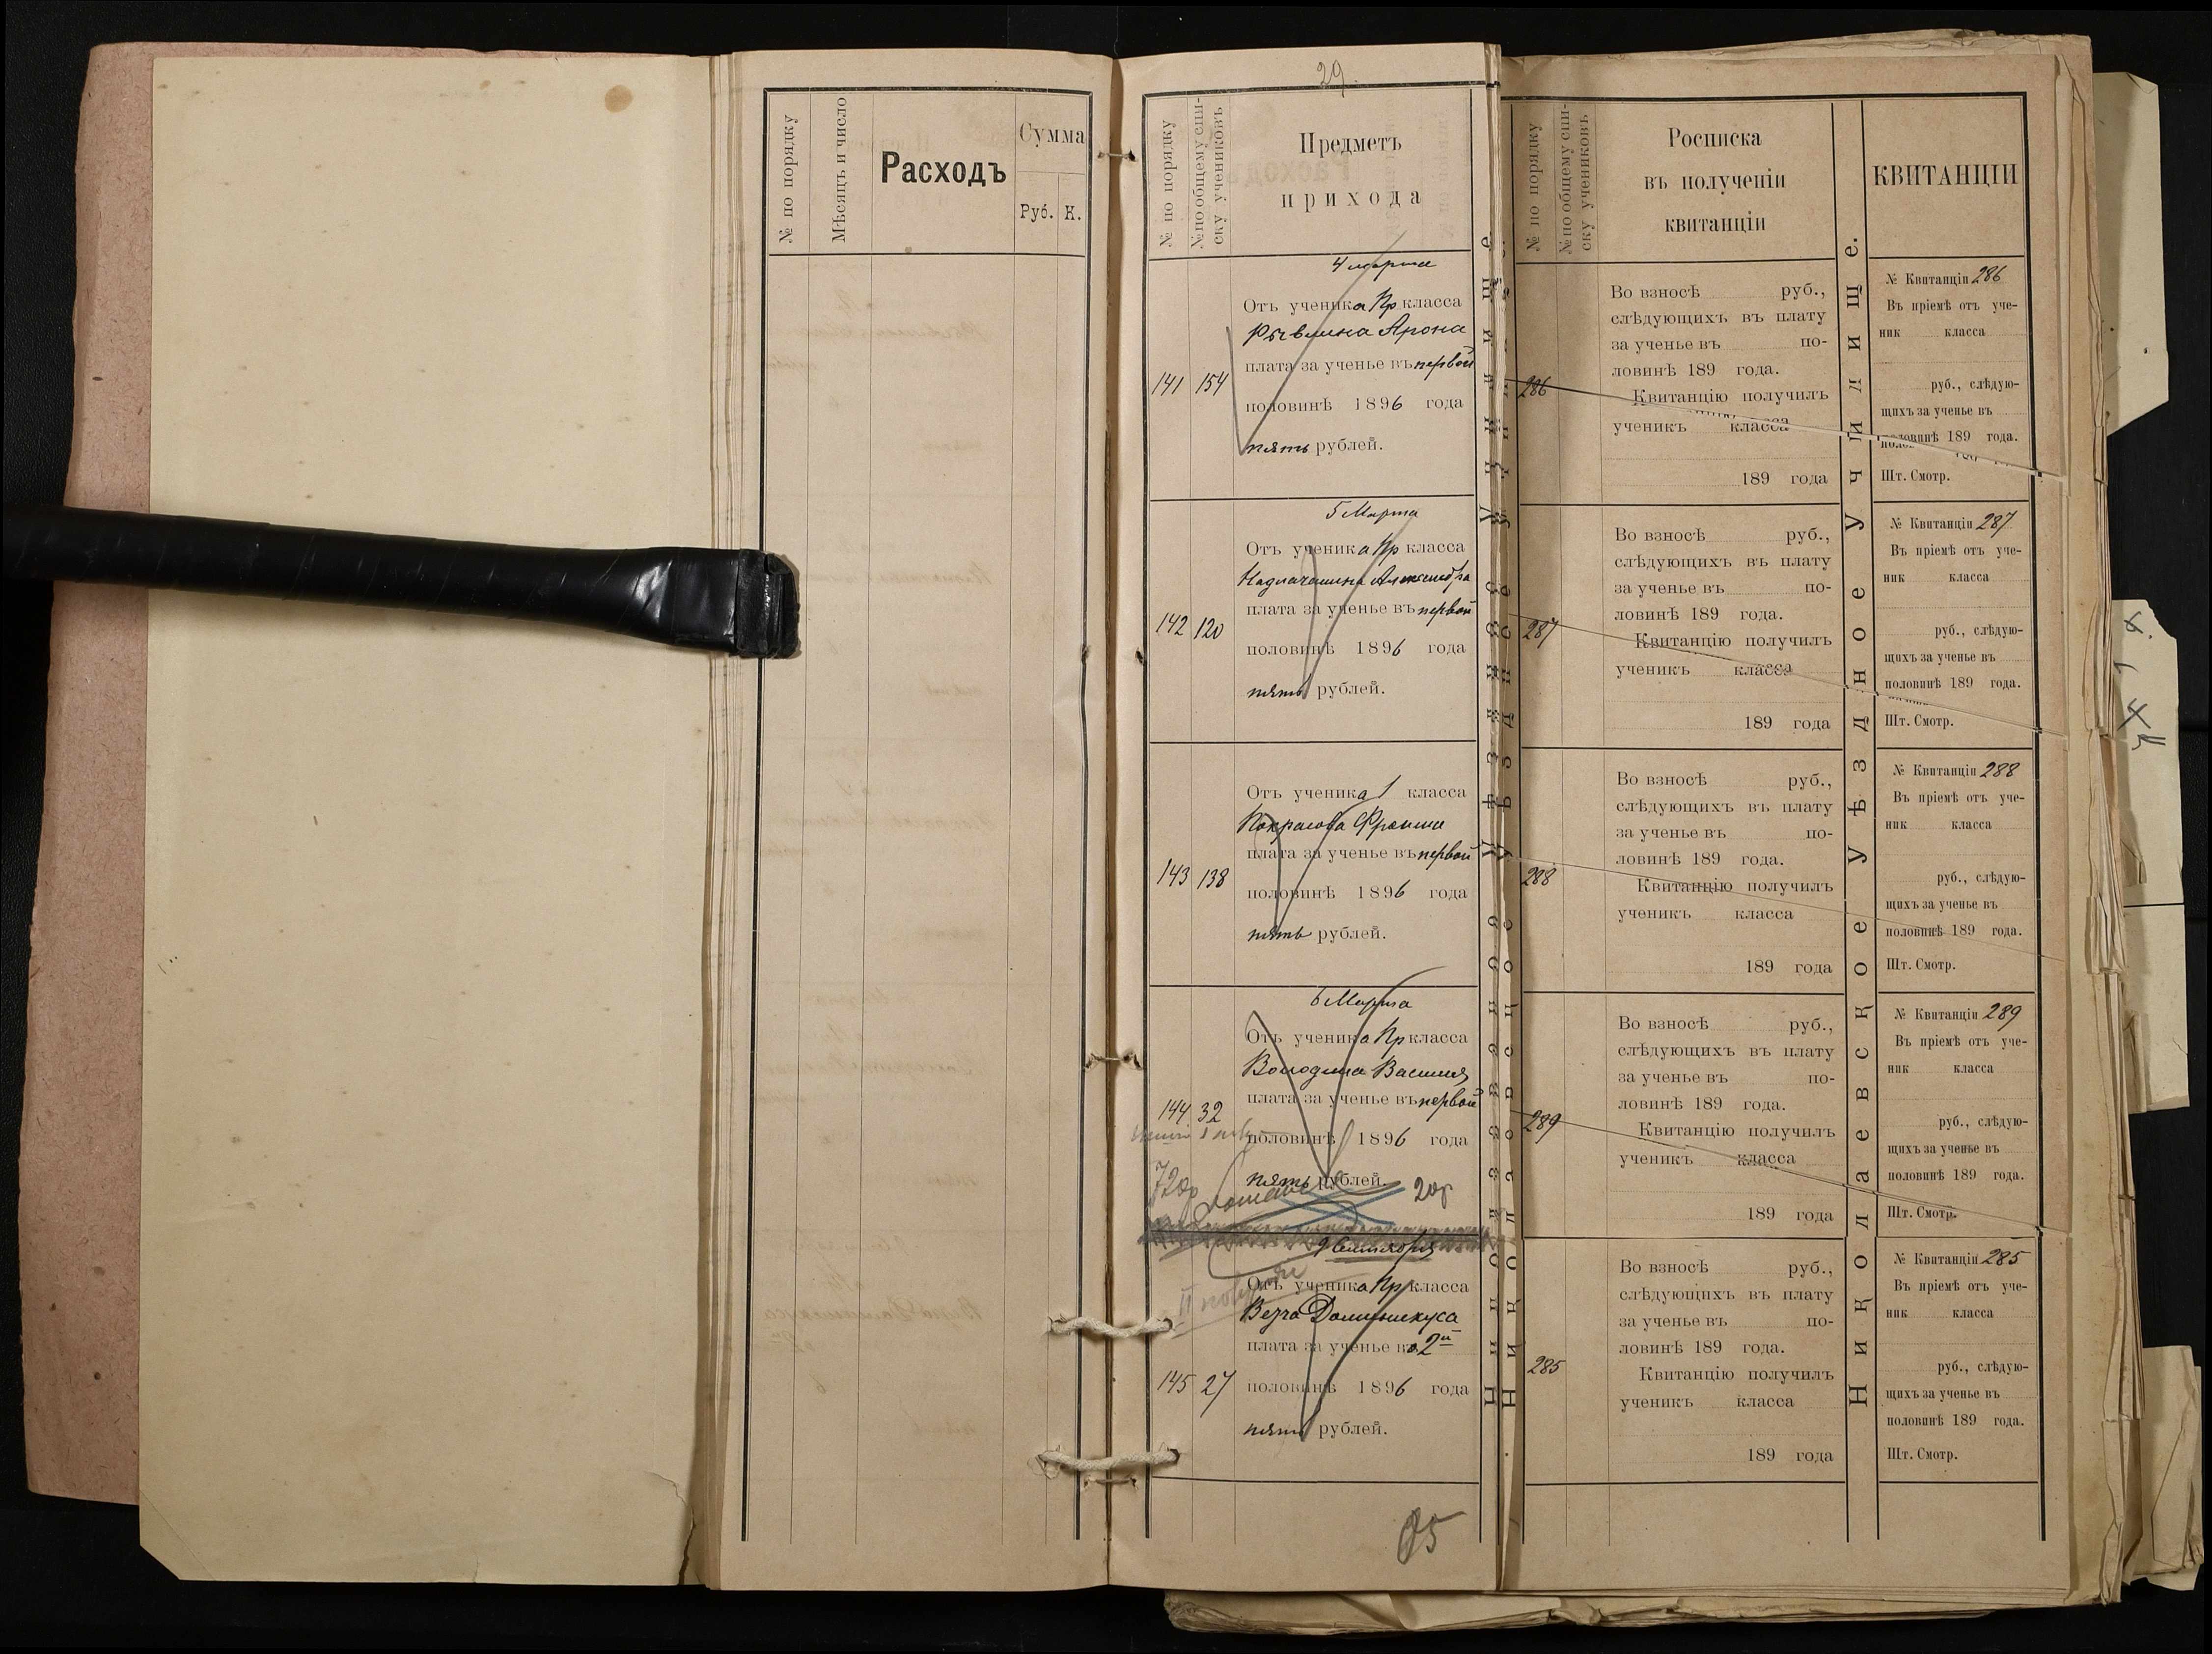 № по порядку
Мѣсяцъ и число
Расходъ
Сумма
Руб. К.
29
№ по порядку
№ по общему спи-
ску учениковъ
Предметъ
прихода
4 марта
141 154
Отъ ученика Пр класса
Рывлина Арона
плата за ученье въ первой
половинѣ 1896 года
пять рублей.
5 Марта
142 120
Отъ ученика Пр класса
Александра
плата за ученье въ первой
половинѣ 1896 года
пять рублей.
143 138
Отъ ученика 1 класса
Покрасова
плата за ученье въ первой
половинѣ 1896 года
пять рублей.
6 Марта
144 32
Отъ ученика Пр класса
Володина Василия
плата за ученье въ первой
половинѣ 1896 года
пять рублей.
720р 20р
9 Сентября
145 27
Отъ ученика Пр класса
Доминикуса
плата за ученье во 2й
половинѣ 1896 года
пять рублей.
85
№ по порядку
№ по общему спи-
ску учениковъ
Росписка
въ полученіи
квитанціи
286
Во взносѣ руб.,
слѣдующихъ въ плату
за ученье въ по-
ловинѣ 189 года.
Квитанцію получилъ
ученикъ класса
189 года
287
Во взносѣ руб.,
слѣдующихъ въ плату
за ученье въ по-
ловинѣ 189 года.
Квитанцію получилъ
ученикъ класса
189 года
288
Во взносѣ руб.,
слѣдующихъ въ плату
за ученье въ по-
ловинѣ 189 года.
Квитанцію получилъ
ученикъ класса
189 года
289
Во взносѣ руб.,
слѣдующихъ въ плату
за ученье въ по-
ловинѣ 189 года.
Квитанцію получилъ
ученикъ класса
189 года
285
Во взносѣ руб.,
слѣдующихъ въ плату
за ученье въ по-
ловинѣ 189 года.
Квитанцію получилъ
ученикъ класса
189 года
Николаевское Уѣздное Училище.
КВИТАНЦІИ
№ Квитанціи 286
Въ пріемѣ отъ уче-
ник класса
руб., слѣдую-
щихъ за ученье въ
половинѣ 189 года.
Шт. Смотр.
№ Квитанціи 287
Въ пріемѣ отъ уче-
ник класса
руб., слѣдую-
щихъ за ученье въ
половинѣ 189 года.
Шт. Смотр.
№ Квитанціи 288
Въ пріемѣ отъ уче-
ник класса
руб., слѣдую-
щихъ за ученье въ
половинѣ 189 года.
Шт. Смотр.
№ Квитанціи 289
Въ пріемѣ отъ уче-
ник класса
руб., слѣдую-
щихъ за ученье въ
половинѣ 189 года.
Шт. Смотр.
№ Квитанціи 285
Въ пріемѣ отъ уче-
ник класса
руб., слѣдую-
щихъ за ученье въ
половинѣ 189 года.
Шт. Смотр.